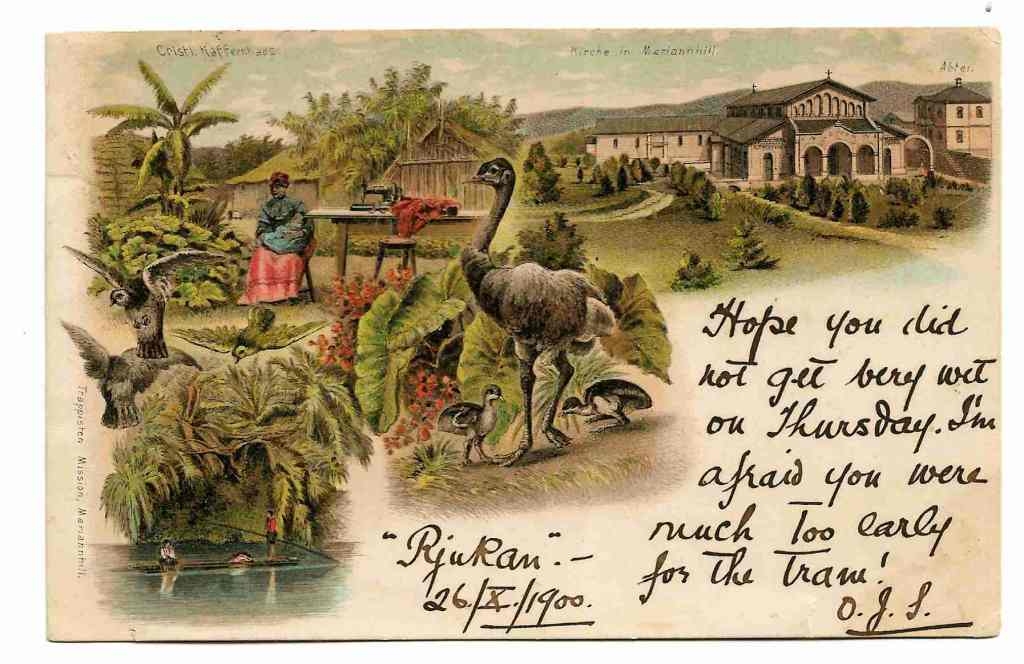 Cristl. Kaffernhaus.
Kirche in Mariannhill.
Abtei.
Trappisten Mission, Mariannhill.
Hope you did
not get very wet
on Thursday. I'm
afraid you were
much too early
for the tram!
O. J. S.
"Rjukan".-
26/X./1900.